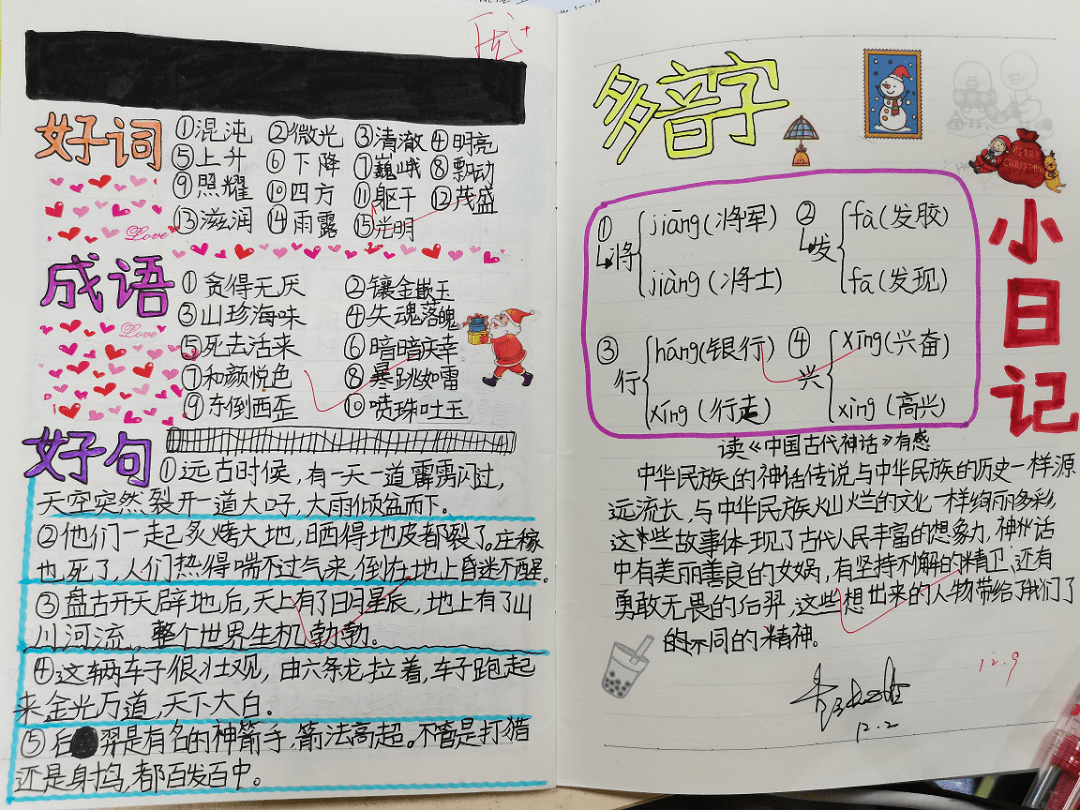 优+
好词
①混沌 ②微光 ③清澈 ④明亮
⑤上升 ⑥下降 ⑦巍峨 ⑧飘动
⑨照耀 ⑩四方 ⑪躯干 ⑫茂盛
⑬滋润 ⑭雨露 ⑮光明
Love
成语
①贪得无厌 ②镶金嵌玉
③山珍海味 ④失魂落魄
Love
⑤死去活来 ⑥暗暗庆幸
⑦和颜悦色 ⑧暴跳如雷
⑨东倒西歪 ⑩喷珠吐玉
好句
①远古时候,有一天一道霹雳闪过,
天空突然裂开一道大口子,大雨倾盆而下。
②他们一起炙烤大地,晒得地皮都裂了。庄稼
也死了,人们热得喘不过气来,倒在地上昏迷不醒。
③盘古开天辟地后,天上有了日月星辰,地上有了山
川河流,整个世界生机勃勃。
④这辆车子很壮观,由六条龙拉着,车子跑起
来金光万道,天下大白。
⑤后羿是有名的神箭手,箭法高超。不管是打猎
还是射鸟,都百发百中。
多音字
①将 jiāng(将军) ②发 fà(发胶)
jiàng(将士) fā(发现)
③行 háng(银行) ④兴 xīng(兴奋)
xíng(行走) xìng(高兴)
小日记
读《中国古代神话》有感
中华民族的神话传说与中华民族的历史一样源
远流长,与中华民族灿烂的文化一样绚丽多彩,
这些故事体现了古代人民丰富的想象力,神话
中有美丽善良的女娲,有坚持不懈的精卫,还有
勇敢无畏的后羿,这些想出来的人物带给了我们了
的不同的精神。
12.9
12.2